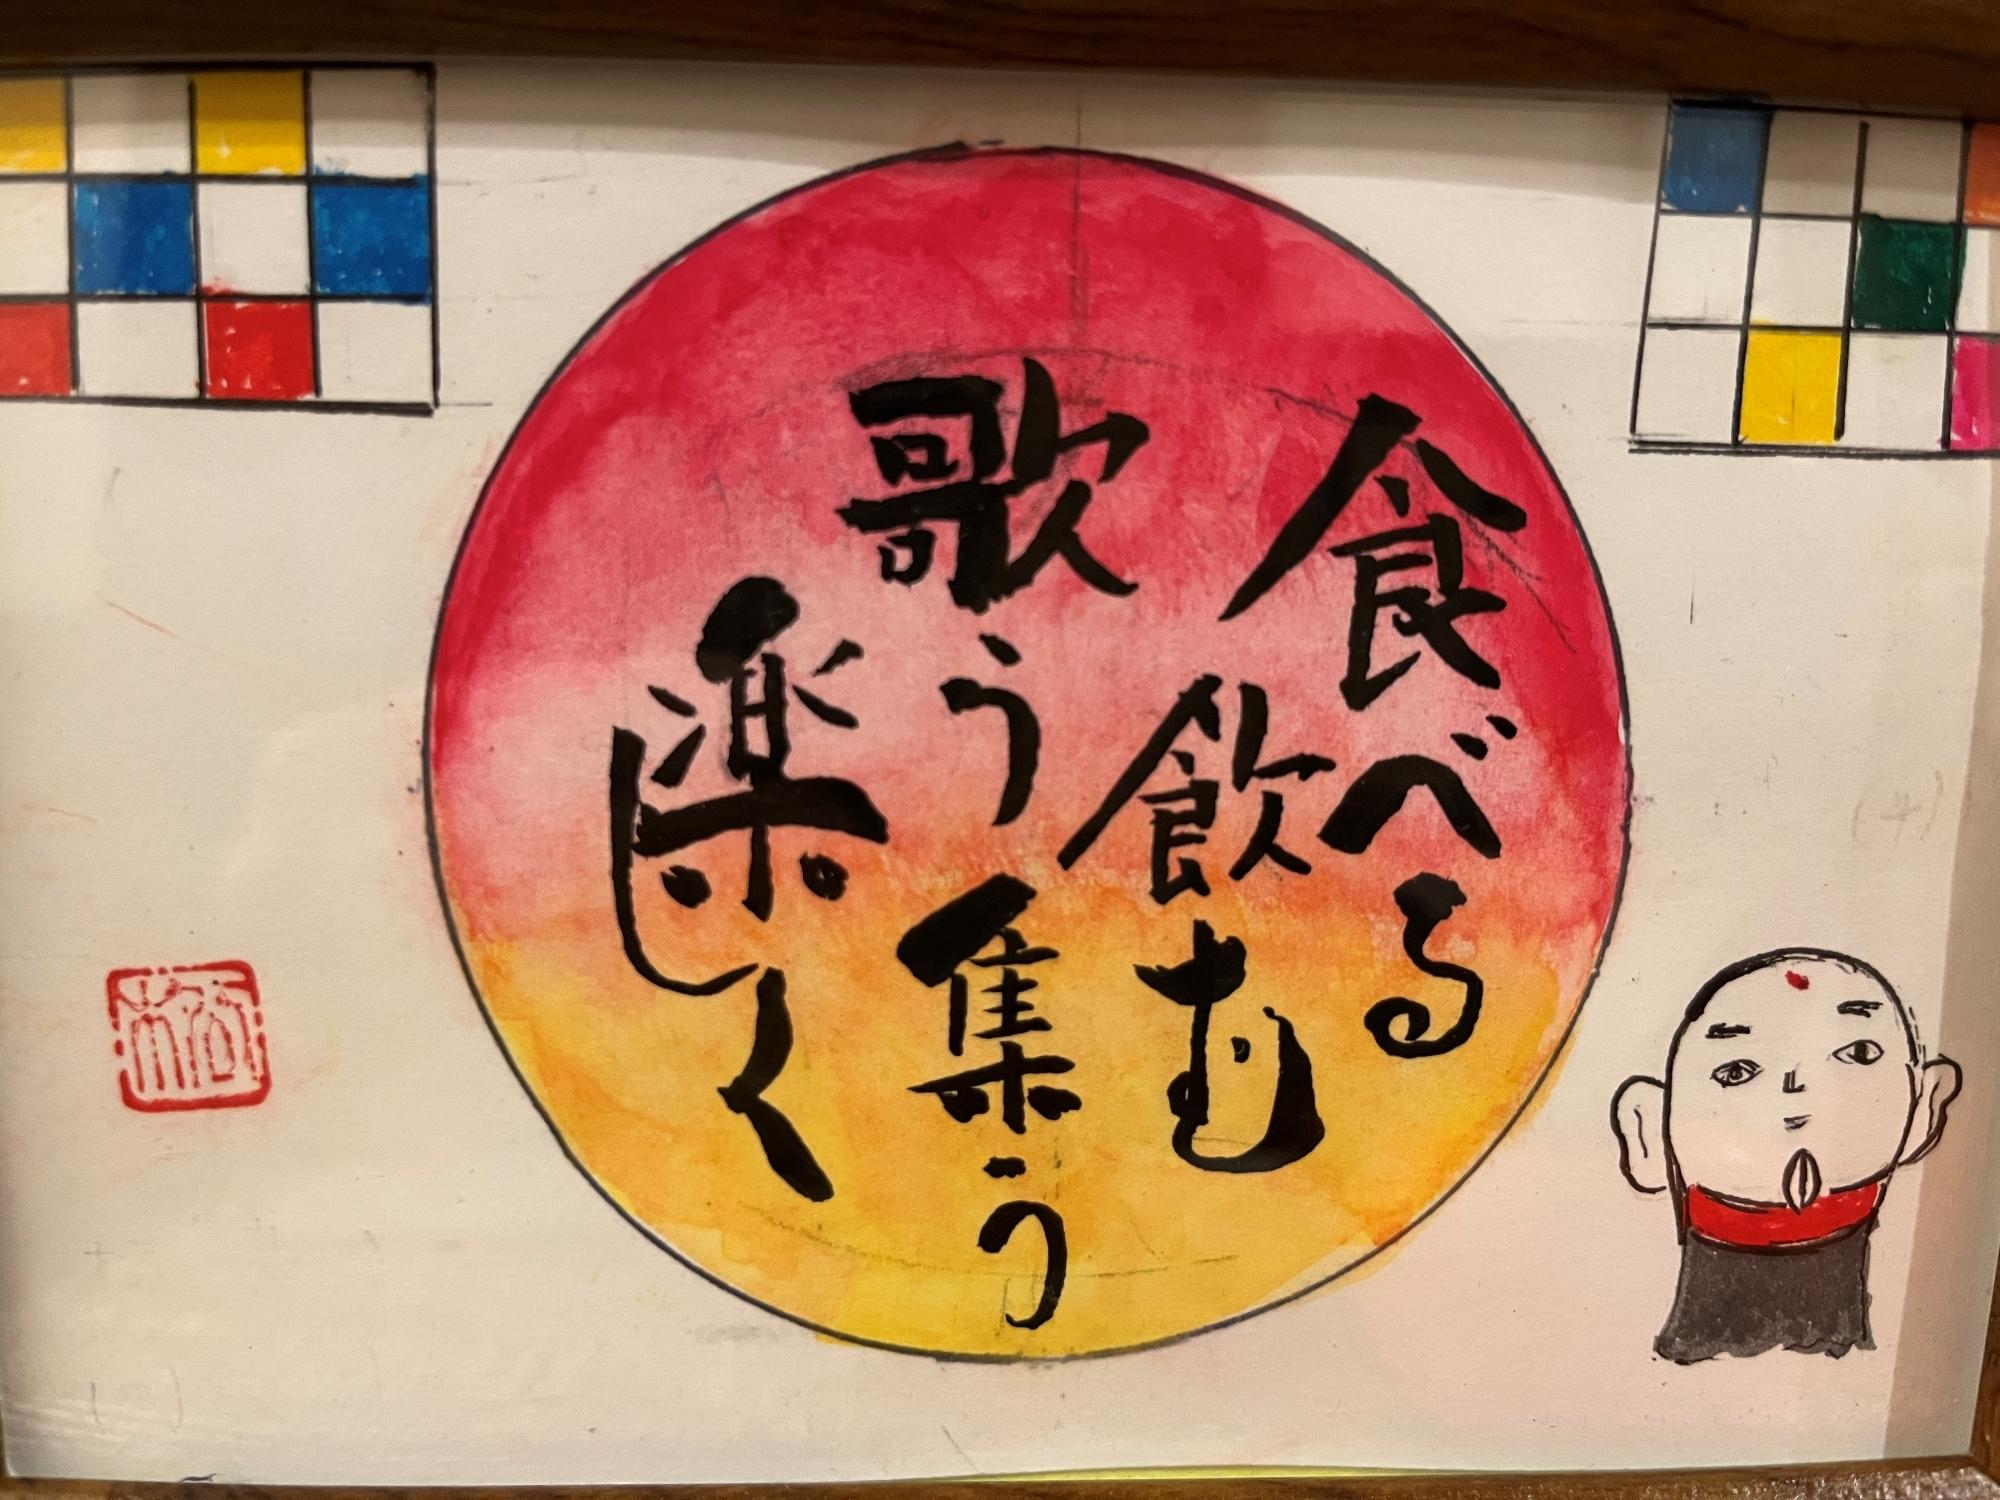 食べる
飲む
歌う集う
楽しく